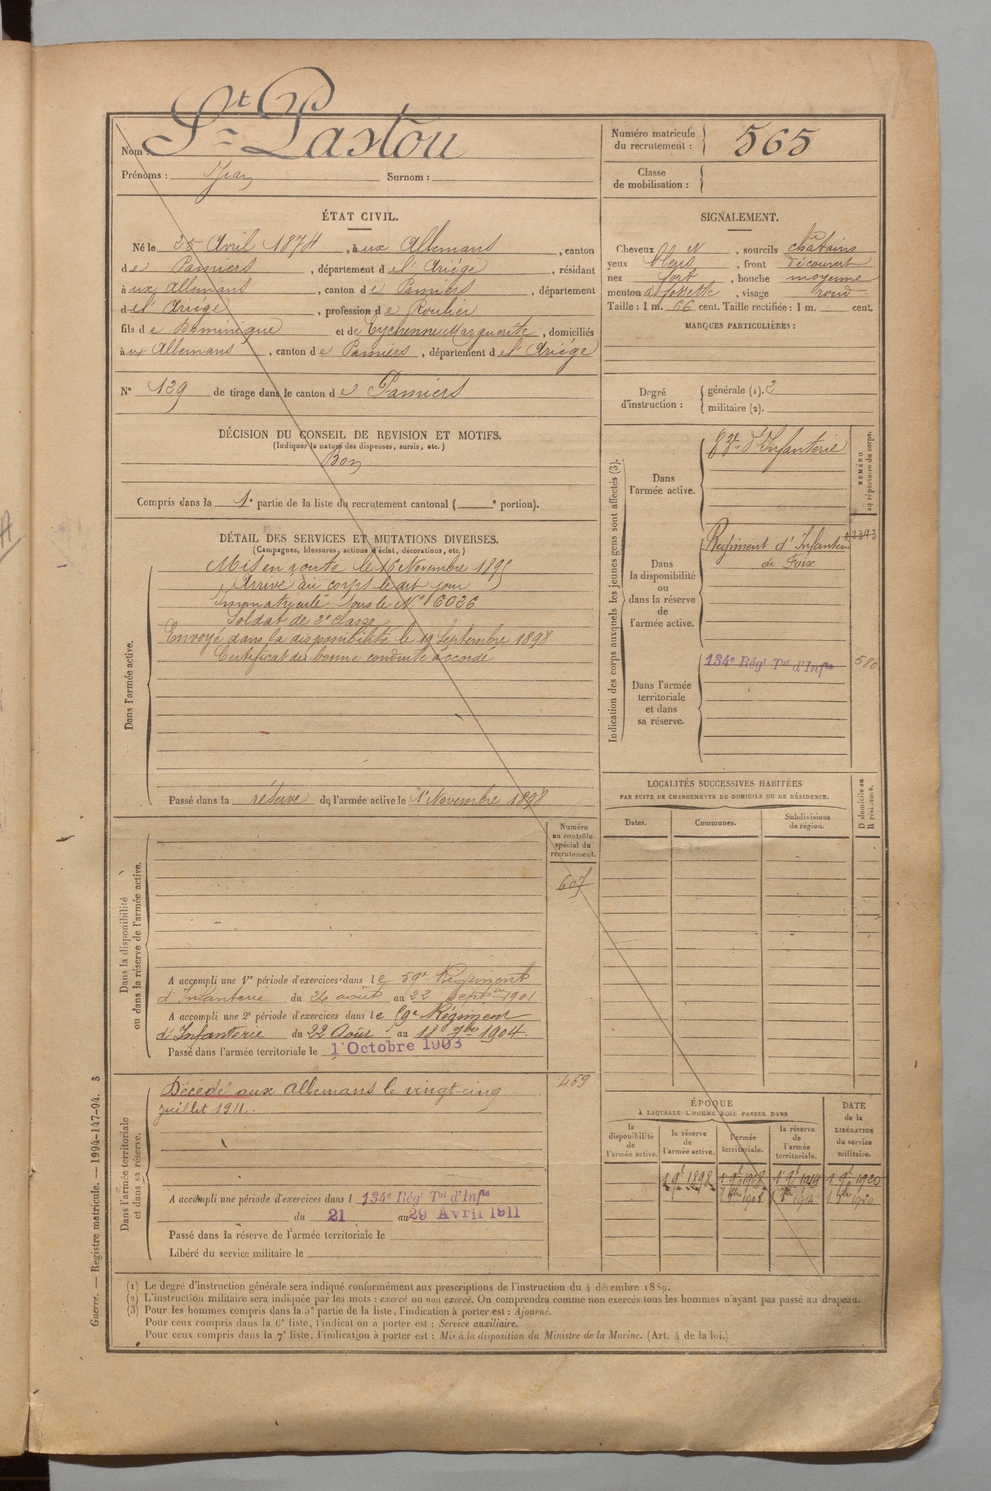 Nom : St Pastou
Prénoms : Jean Surnom :
Numéro matricule du recrutement : 565
Classe de mobilisation :
ÉTAT CIVIL.
Né le 25 Avril 1874, à ux Allemans, canton
d e Pamiers, département d e l'Ariège, résidant
à ux Allemans, canton d e Pamiers, département
d e l'Ariège, profession d e Roulier
fils d e Dominique et de Eychenne Marguerite, domiciliés
à ux Allemans, canton d e Pamiers, département d e l'Ariège
N° 139 de tirage dans le canton d e Pamiers
DÉCISION DU CONSEIL DE REVISION ET MOTIFS.
(Indiquer la nature des dispenses, sursis, etc.)
Bon
Compris dans la 1e partie de la liste du recrutement cantonal ( e portion).
SIGNALEMENT.
Cheveux , sourcils châtains
yeux bleus , front découvert
nez fort , bouche moyenne
menton à fossette , visage rond
Taille : 1 m. 66 cent. Taille rectifiée : 1 m. cent.
MARQUES PARTICULIÈRES :
Degré d'instruction : générale (1). 2
militaire (2).
Indication des corps auxquels les jeunes gens sont affectés (3).
NUMÉRO au répertoire du corps.
Dans l'armée active.
d'Infanterie
Dans la disponibilité ou dans la réserve de l'armée active.
Régiment d'Infanterie
de Foix
Dans l'armée territoriale et dans sa réserve.
134e Rég Tal d'Infie 580
DÉTAIL DES SERVICES ET MUTATIONS DIVERSES.
(Campagnes, blessures, actions d'éclat, décorations, etc.)
Dans l'armée active.
Mis en route le 16 Novembre 1895
Arrivé au corps le dit jour
Immatriculé sous le N° 6036
Soldat de 2e classe
Envoyé dans la disponibilité le 19 Septembre 1898
Certificat de bonne conduite accordé
Passé dans la réserve de l'armée active le 1r Novembre 1898
LOCALITÉS SUCCESSIVES HABITÉES
PAR SUITE DE CHANGEMENTS DE DOMICILE OU DE RÉSIDENCE.
Dates. Communes. Subdivisions de région. D domicile ou R résidence.
Dans la disponibilité ou dans la réserve de l'armée active.
Numéro au contrôle spécial du recrutement.
607
A accompli une 1re période d'exercices dans l e 59e Régiment
d'Infanterie du 26 août au 22 septbre 1901
A accompli une 2e période d'exercices dans l e Régiment
d'Infanterie du 22 Août au 18 7bre 1904.
Passé dans l'armée territoriale le 1r Octobre 1903
Dans l'armée territoriale et dans sa réserve.
469
Décédé aux Allemans le vingt-cinq
juillet 1911.
A accompli une période d'exercices dans l 134e Rég Tal d'Infie
du 21 au 29 Avril 1911
Passé dans la réserve de l'armée territoriale le
Libéré du service militaire le
ÉPOQUE
À LAQUELLE L'HOMME DOIT PASSER DANS
la disponibilité de l'armée active. la réserve de l'armée active. l'armée territoriale. la réserve de l'armée territoriale. DATE de la LIBÉRATION du service militaire.
(1) Le degré d'instruction générale sera indiqué conformément aux prescriptions de l'instruction du 4 décembre 1889.
(2) L'instruction militaire sera indiquée par les mots : exercé ou non exercé. On comprendra comme non exercés tous les hommes n'ayant pas passé au drapeau.
(3) Pour les hommes compris dans la 5e partie de la liste, l'indication à porter est : Ajourné.
Pour ceux compris dans la 6e liste, l'indication à porter est : Service auxiliaire.
Pour ceux compris dans la 7e liste, l'indication à porter est : Mis à la disposition du Ministre de la Marine. (Art. 4 de la loi.)
Guerre. — Registre matricule. — 1994-147-94. 3